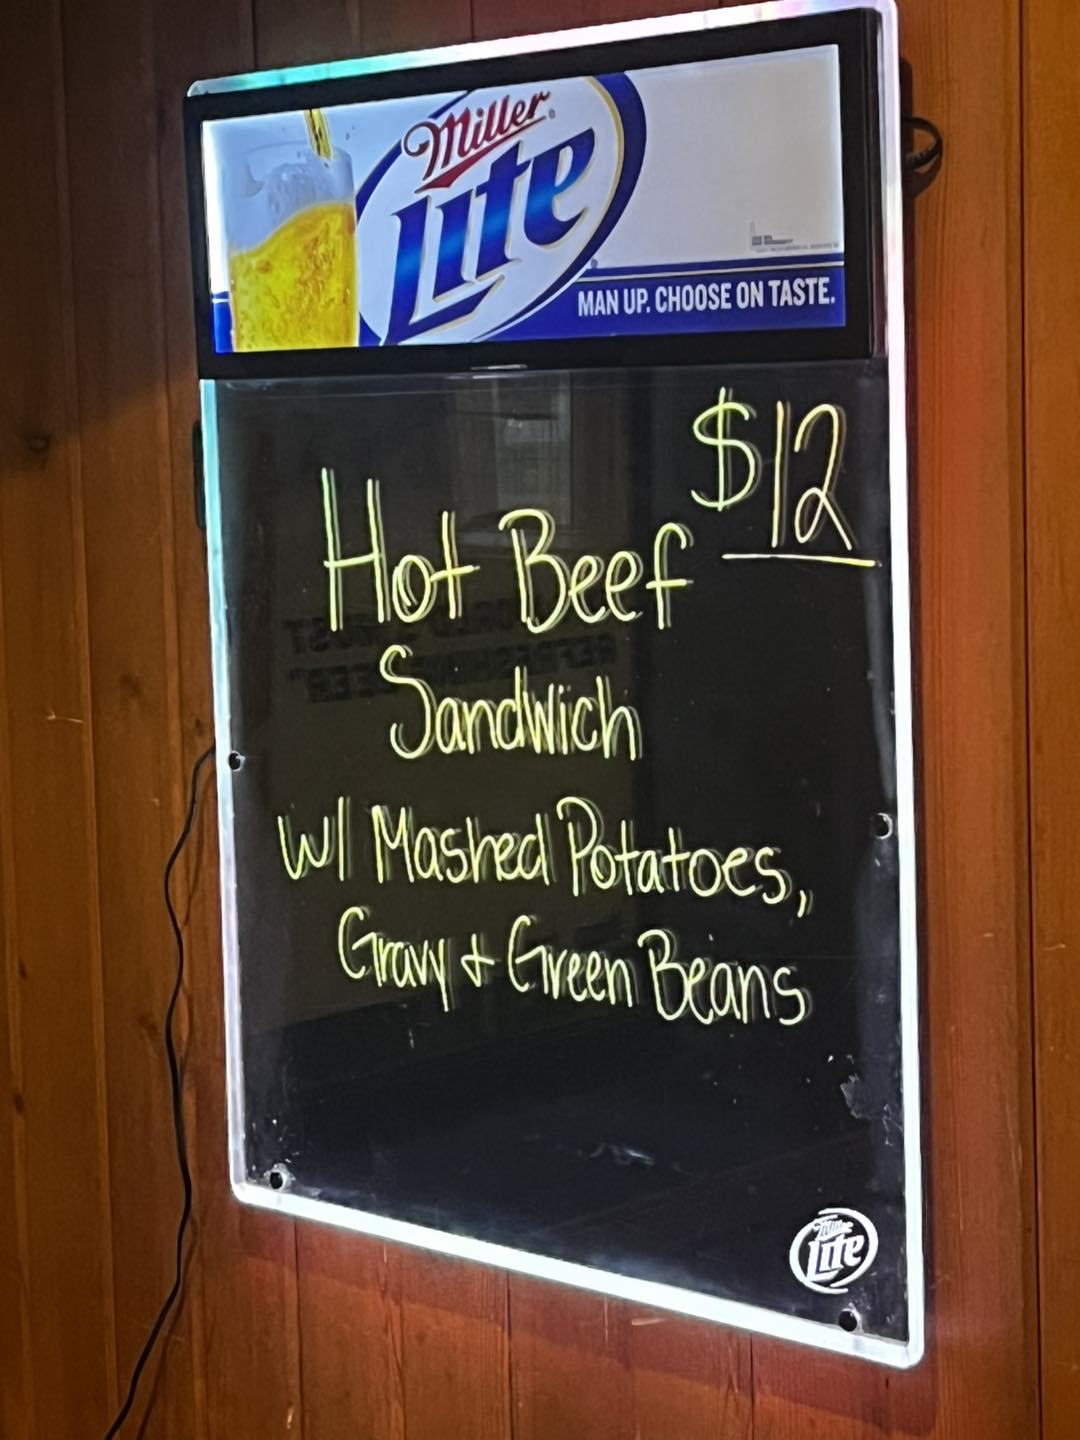 Miller
Lite
MAN UP. CHOOSE ON TASTE.
$12
Hot Beef
Sandwich
w/ Mashed Potatoes,
Gravy + Green Beans
Miller
Lite